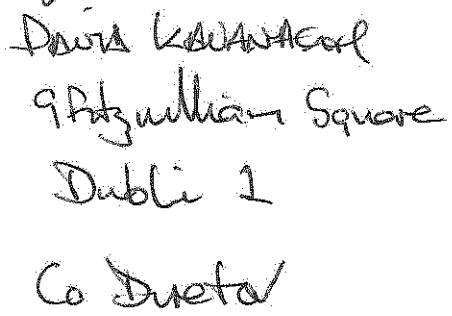 DAVID KAVANAGH
9 Fitzwilliam Square
Dublin 1
Co Director